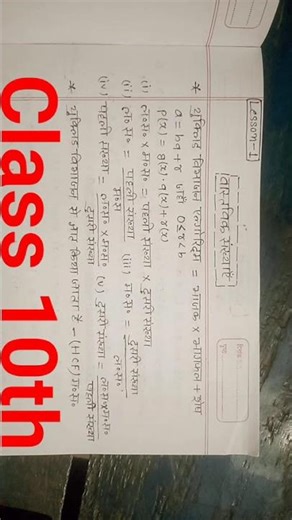 Lesson-1
वास्तविक संख्याएँ
* युक्लिड विभाजन एल्गोरिदम = भाजक × भागफल + शेष
a = bq + r जहाँ 0≤r<b
p(x) = g(x). q(x) + r(x)
(i) ल०स० × म०स० = पहली संख्या × दूसरी संख्या
(ii) ल०स० = पहली संख्या / म०स० (iii) म०स० = दूसरी संख्या / ल०स०
(iv) पहली संख्या = ल०स० × म०स० / दूसरी संख्या (v) दूसरी संख्या = ल०स०×म०स० / पहली संख्या
* युक्लिड विभाजन से ज्ञात किया जाता है - (HCF) म०स०
Class 10th